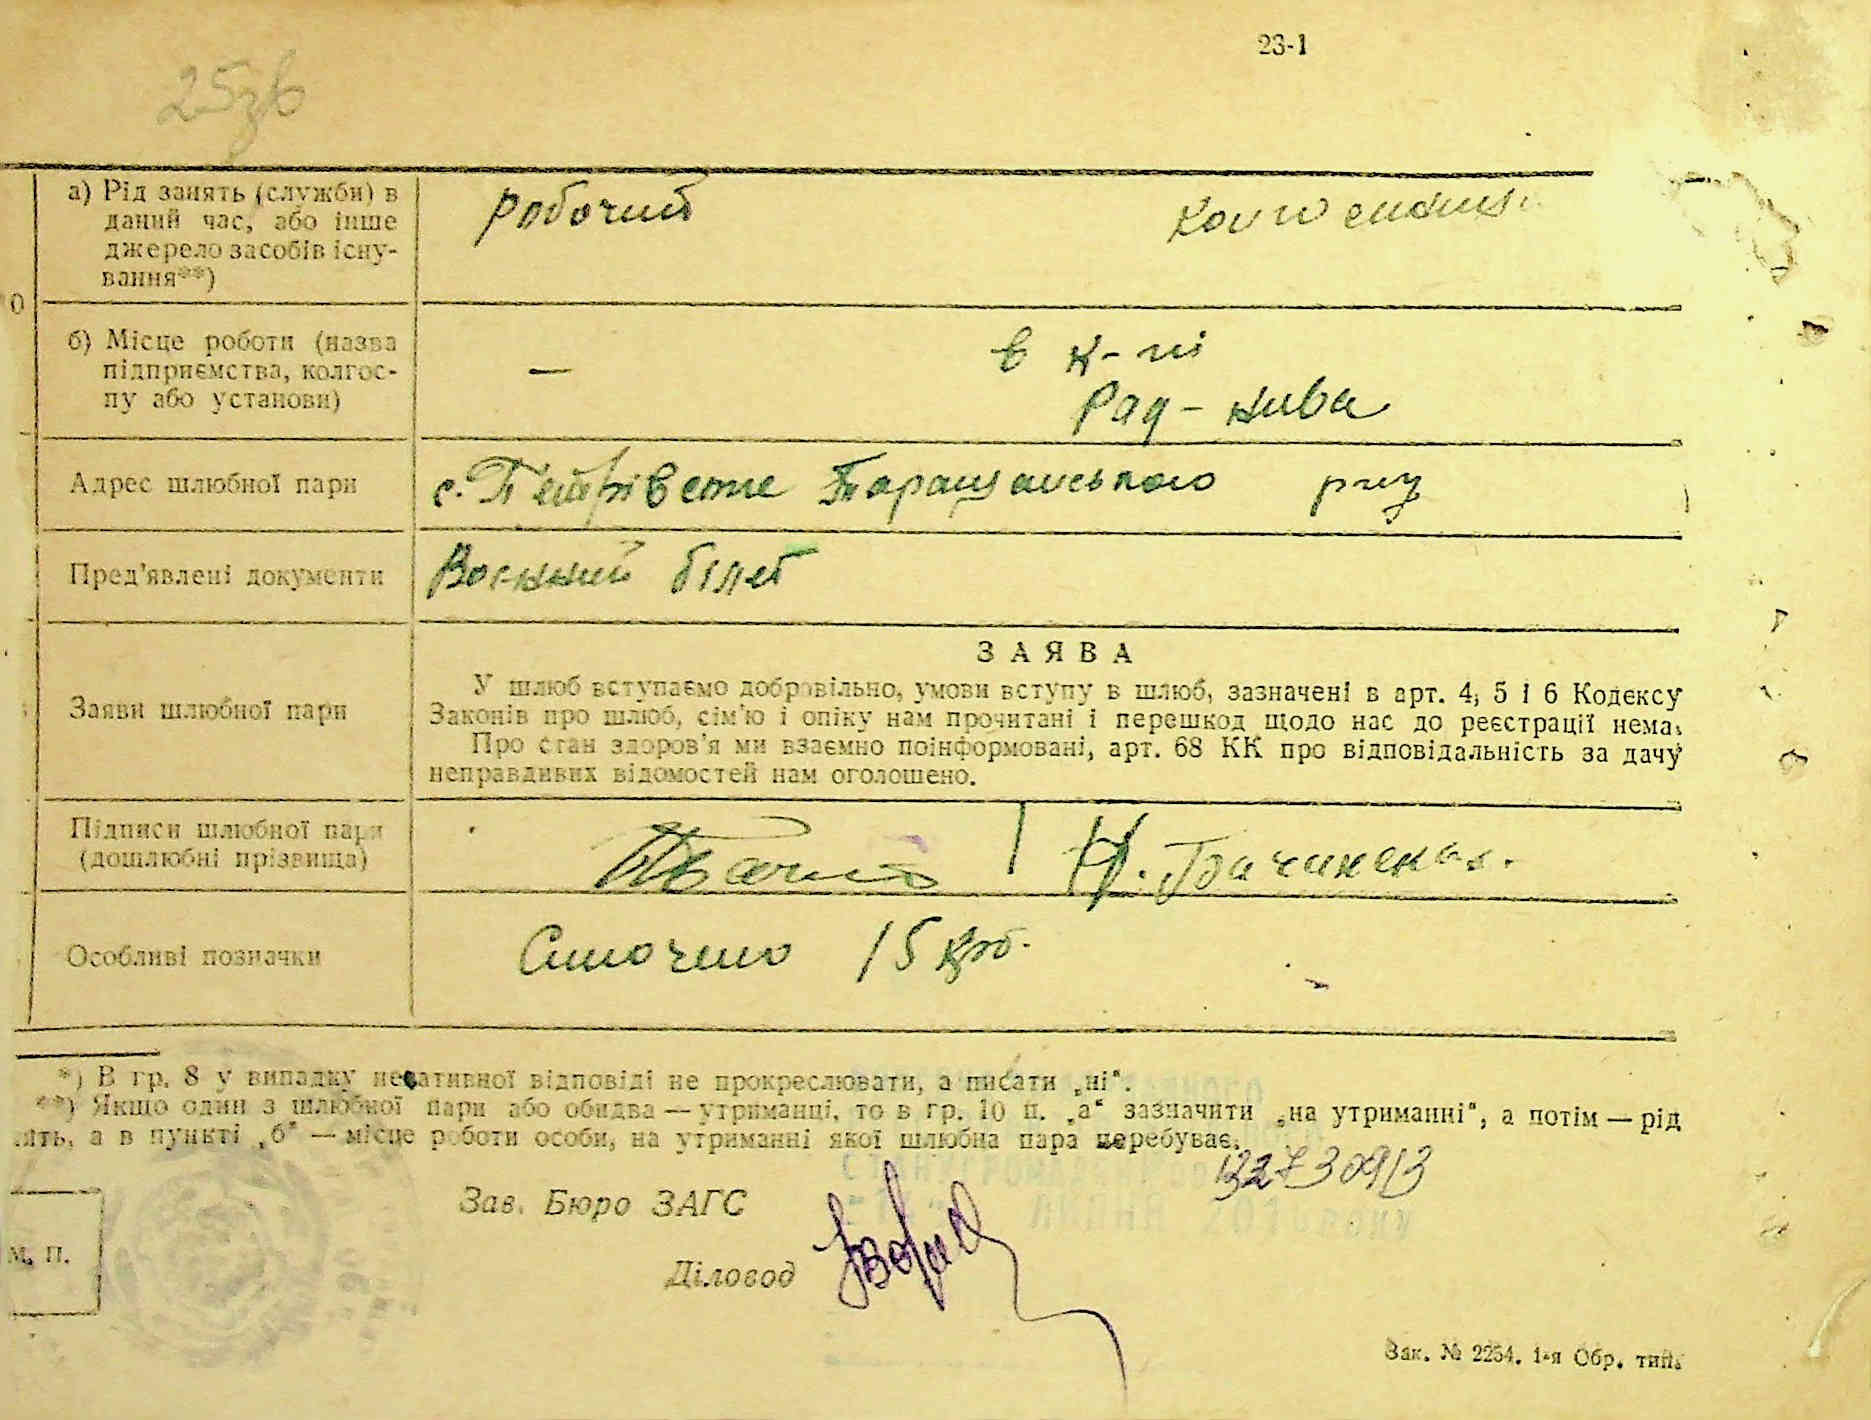 23-1
25зв
а) Рід занять (служби) в
даний час, або інше
джерело засобів існу-
вання**)
робочий
б) Місце роботи (назва
підприємства, колгос-
пу або установи)
—
в к-пі
Рад-нива
Адрес шлюбної пари
с. Петрівське Таращанського р-ну
Пред'явлені документи
Воєнний білет
Заяви шлюбної пари
ЗАЯВА
У шлюб вступаємо добровільно, умови вступу в шлюб, зазначені в арт. 4, 5 і 6 Кодексу
Законів про шлюб, сім'ю і опіку нам прочитані і перешкод щодо нас до реєстрації нема.
Про стан здоров'я ми взаємно поінформовані, арт. 68 КК про відповідальність за дачу
неправдивих відомостей нам оголошено.
Підписи шлюбної пари
(дошлюбні прізвища)
Особливі позначки
15 крб.
*) В гр. 8 у випадку негативної відповіді не прокреслювати, а писати „ні“.
**) Якщо один з шлюбної пари або обидва — утриманці, то в гр. 10 п. „а“ зазначити „на утриманні“, а потім — рід
.ять, а в пункті „б“ — місце роботи особи, на утриманні якої шлюбна пара перебуває.
Зав. Бюро ЗАГС
М. П.
Діловод
Зак. № 2254. 1-я Обр. тип.